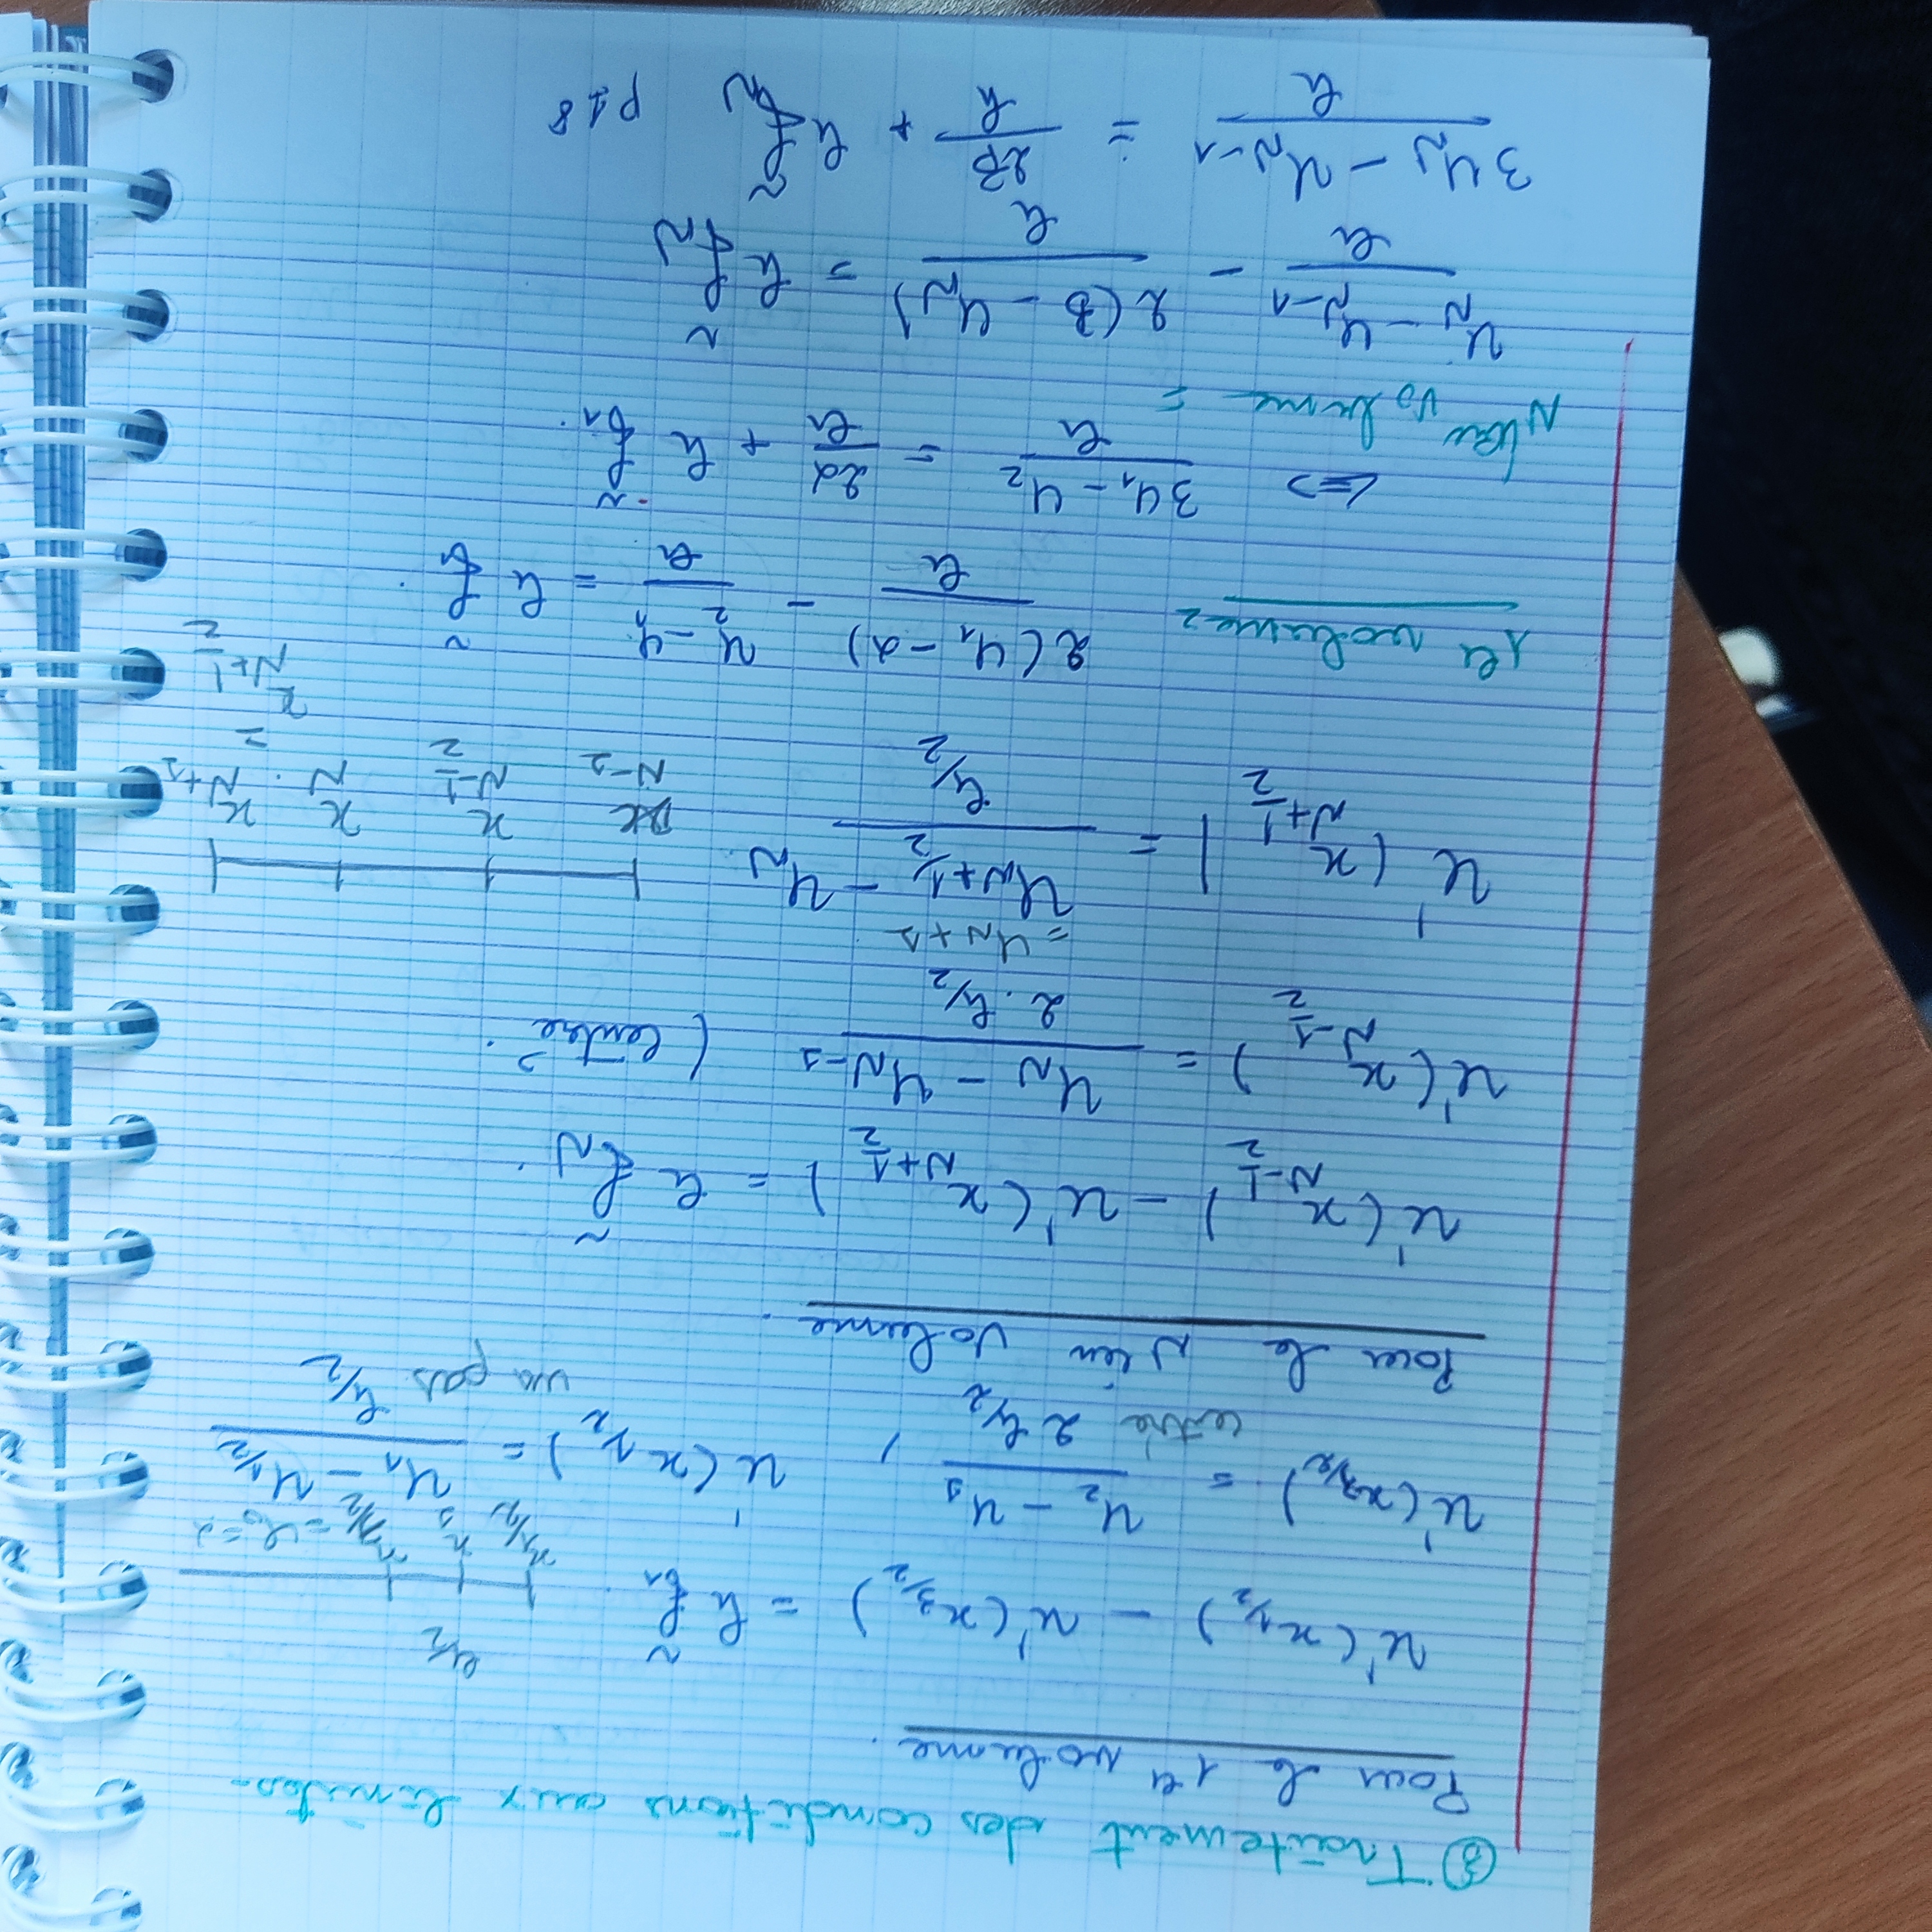 ③ Traitement des conditions aux limites.
Pour le 1er volume.
u'(x_{1/2}) - u'(x_{3/2}) = h f̃_1.
h/2
x_{1/2} x_1 x_{3/2}
u'(x_{3/2}) = (u_2 - u_1) / (2 h/2) , u'(x_{1/2}) = (u_1 - u_{1/2}) / (h/2)
= u_0 = α
centré
un pas
Pour le N ième volume.
u'(x_{N-1/2}) - u'(x_{N+1/2}) = h f̃_N.
u'(x_{N-1/2}) = (u_N - u_{N-1}) / (2 . h/2) (centré.
= u_{N+1}
u'(x_{N+1/2}) = (u_{N+1/2} - u_N) / (h/2)
x_{N-1} x_{N-1/2} x_N . x_{N+1}
= x_{N+1/2}
1er volume = 2(u_1 - α)/h - (u_2 - u_1)/h = h f̃_1.
<=> (3u_1 - u_2)/h = 2α/h + h f̃_1.
N ième volume =
(u_N - u_{N-1})/h - 2(β - u_N)/h = h f̃_N
(3u_N - u_{N-1})/h = 2β/h + h f̃_N p18